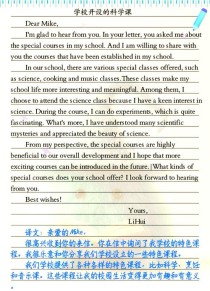 学校开设的科学课
Dear Mike,
I'm glad to hear from you. In your letter, you asked me about
the special courses in my school. And I am willing to share with
you the courses that have been established in my school.
In our school, there are various special classes offered, such
as science, cooking and music classes.These classes make my
school life more interesting and meaningful. Among them, I
choose to attend the science class because I have a keen interest in
science. During the course, I can do experiments, which is quite
fascinating. What's more, I have understood many scientific
mysteries and appreciated the beauty of science.
From my perspective, the special courses are highly
beneficial to our overall development and I hope that more
exciting courses can be introduced in the future. What kinds of
special courses does your school offer? I look forward to hearing
from you.
Best wishes!
Yours,
LiHui
译文：亲爱的Mike,
很高兴收到你的来信。你在信中询问了我学校的特色课
程。我很乐意和你分享我们学校设立的一些特色课程。
我们学校提供了各种各样的特色课程，比如科学、烹饪
和音乐课。这些课程让我的校园生活变得更加有趣和有意义